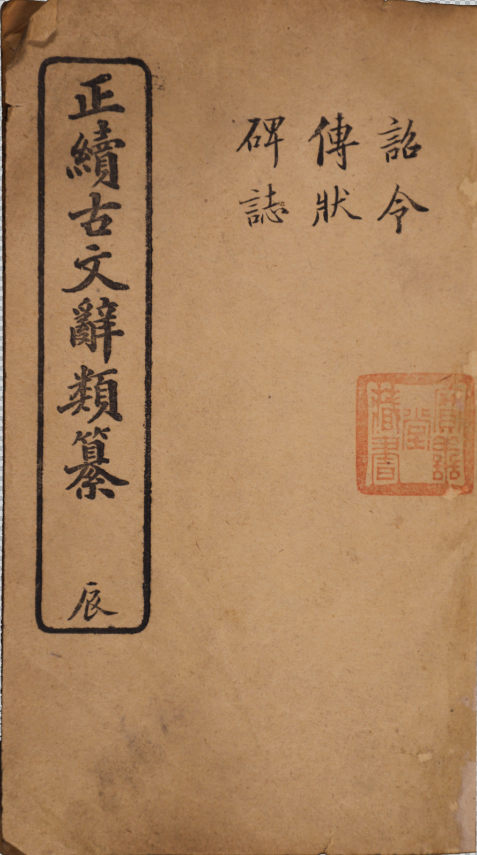 詔令
傳狀
碑誌
堂
藏書
正續古文辭類纂
辰